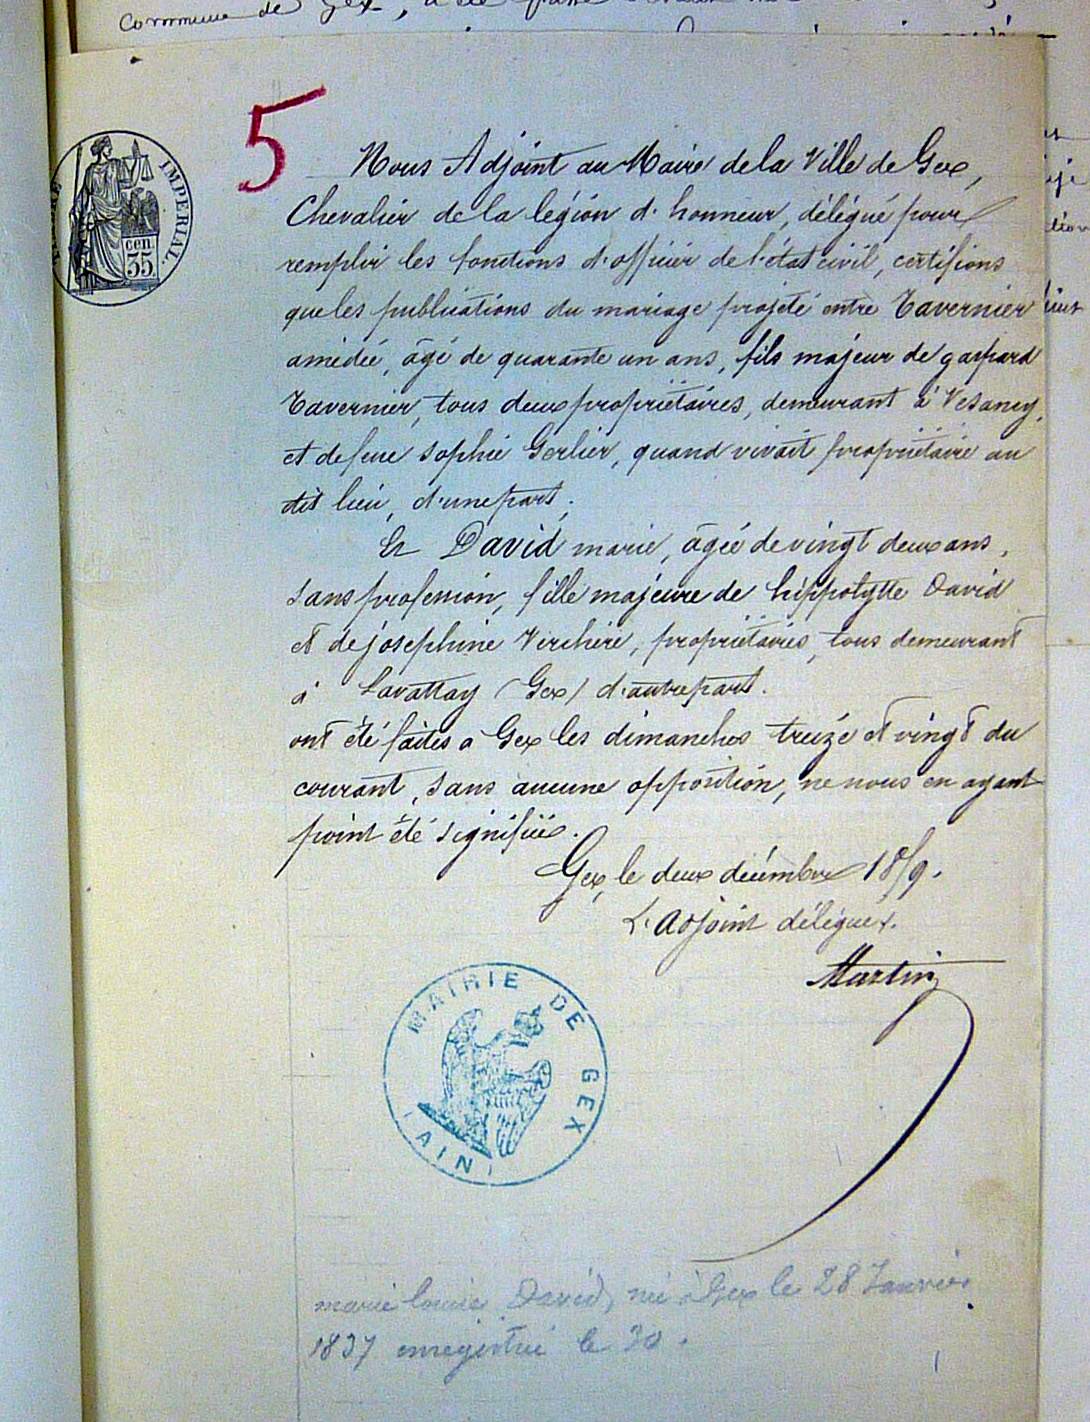 commune de Gex, a été
5
IMPERIAL.
cen.
35
Nous Adjoint au Maire de la Ville de Gex,
Chevalier de la legion d'honneur, délégué pour
remplir les fonctions d'officier de l'état civil, certifions
que les publications du mariage projeté entre Tavernier
amédée, âgé de quarante un ans, fils majeur de gaspard
Tavernier, tous deux propriétaires, demeurant à Vesancy,
et de feue Sophie Gerlier, quand vivait propriétaire au
dit lieu, d'une part;
Et David marie, âgée de vingt deux ans,
sans profession, fille majeure de hippolytte David
et de josephine Verchère, propriétaires, tous demeurant
à Lavattay (Gex) d'autre part.
ont été faites a Gex les dimanches treize et vingt du
courant, sans aucune opposition, ne nous en ayant
point été signifiée.
Gex, le deux décembre 1859.
L'adjoint délégué.
Martin
MAIRIE DE GEX
(AIN)
marie louise David, née à Gex le 28 Janvier
1837 enregistrée le 30.